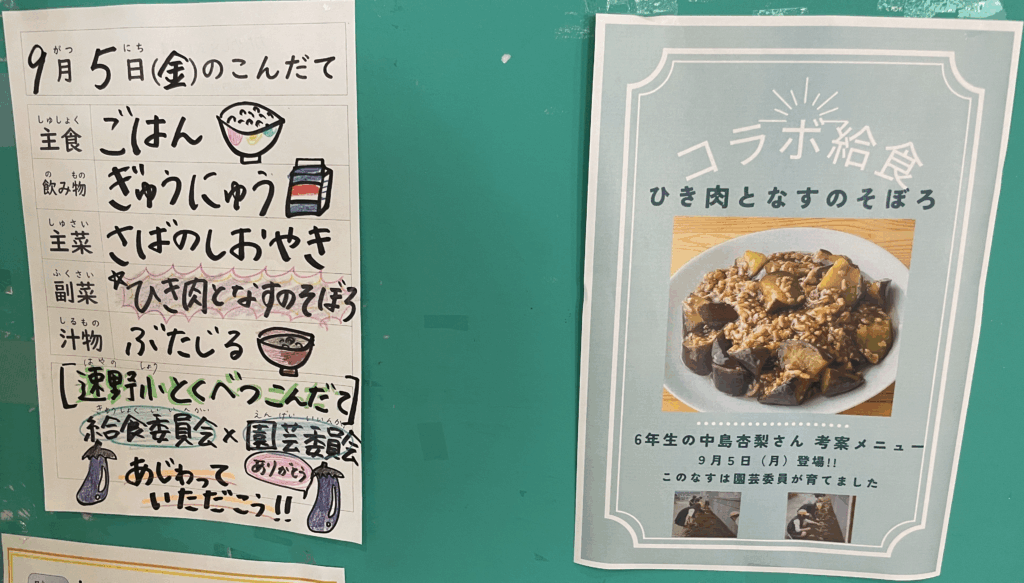 9月5日(金)のこんだて
がつ にち
主食 ごはん
しゅしょく
飲み物 ぎゅうにゅう
の もの
主菜 さばのしおやき
しゅさい
副菜 ☆ひき肉となすのそぼろ
ふくさい
汁物 ぶたじる
しるもの
[速野小とくべつこんだて]
はやの しょう
給食委員会×園芸委員会
きゅうしょくいいんかい えんげいいいんかい
あじわって
いただこう!!
ありがとう
コラボ給食
ひき肉となすのそぼろ
6年生の中島杏梨さん 考案メニュー
9月5日(月)登場!!
このなすは園芸委員が育てました